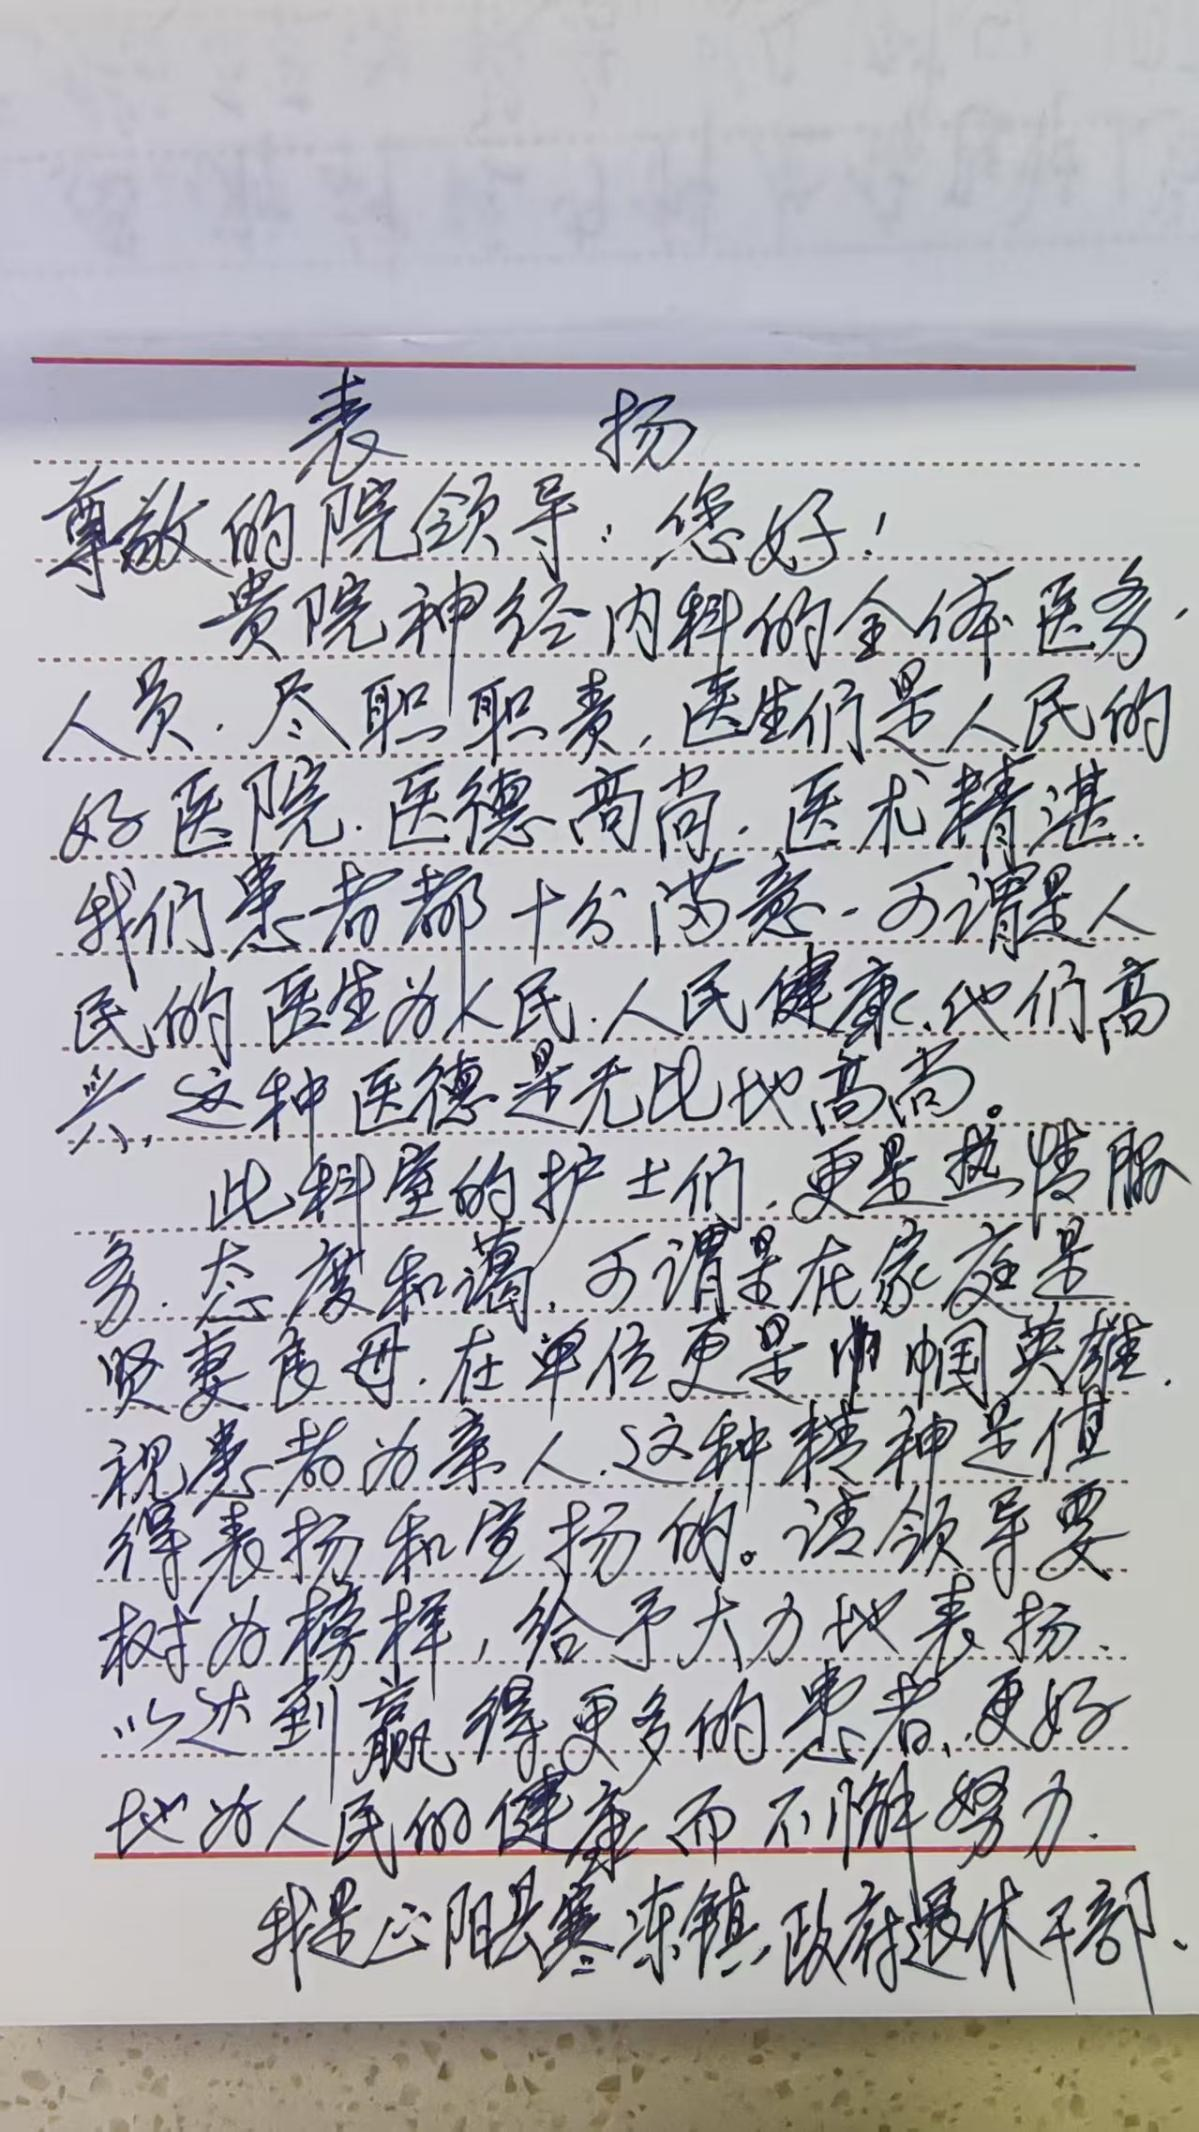 表扬
尊敬的院领导：您好！
贵院神经内科的全体医务
人员．尽职职责，医生们是人民的
好医院．医德高尚．医术精湛．
我们患者都十分满意．可谓是人
民的医生为人民．人民健康．他们高
兴，这种医德是无比地高尚。
此科室的护士们．更是热情服
务．态度和蔼，可谓是在家庭是
贤妻良母．在单位更是巾帼英雄．
视患者为亲人．这种精神是值
得表扬和宣扬的。请领导要
树为榜样，给予大力地表扬、
以达到赢得更多的患者、更好
地为人民的健康而不懈努力．
我是正阳县寒冻镇政府退休干部、